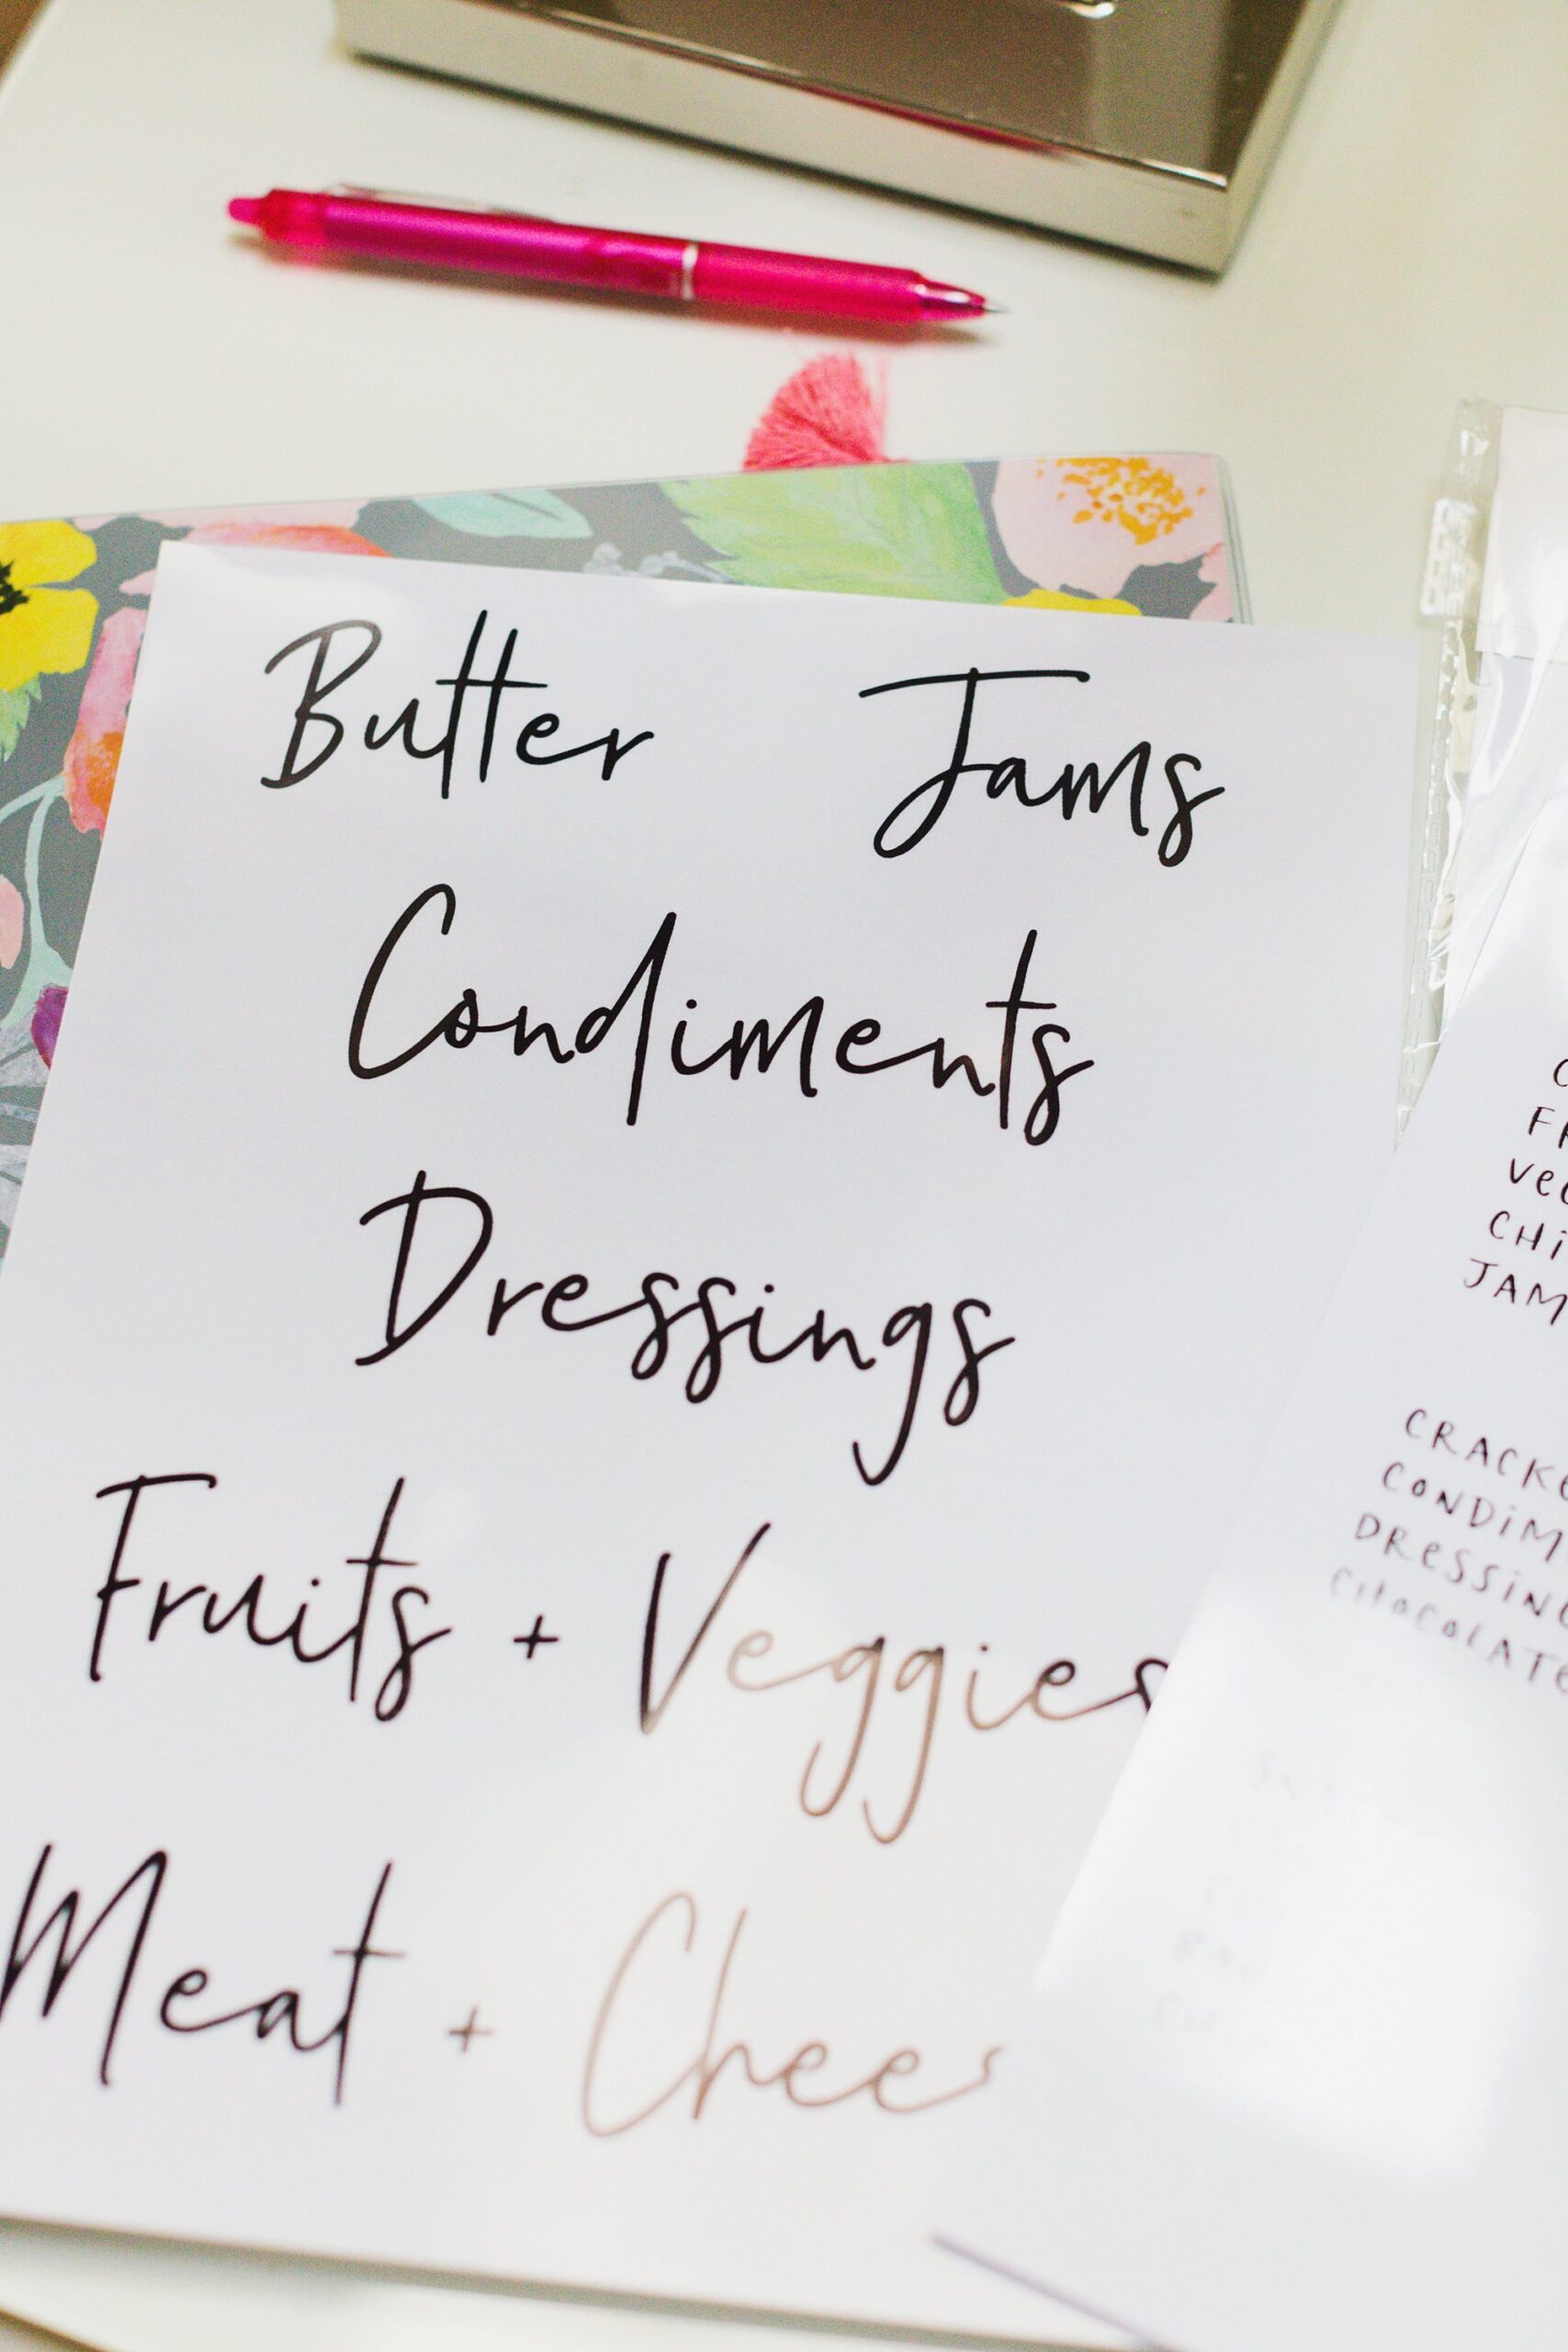 Butter Jams
Condiments
Dressings
Fruits + Veggies
Meat + Chees
VEG
CHI
JAM
CRACKE
CONDIM
DRESSING
CHOCOLATE